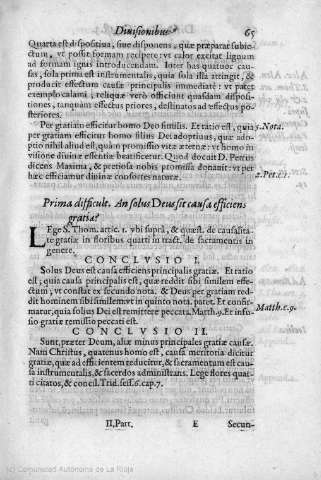 Diuisionibus 65
Quarta est dispositiua, siue disponens, quæ præparat subie-
ctum, vt possit formam recipere vt calor excitat lignum
ad formam ignis introducendam. Inter has quatuor cau-
sas, sola prima est instrumentalis, quia sola illa attingit, &
producit effectum causæ principalis immediatè: vt patet
exemplo calami, reliquæ verò officiunt quasdam disposi-
tiones, tanquam effectus priores, destinatos ad effectus po-
steriores.
Per gratiam efficitur homo Deo similis. Et ratio est, quia 5. Nota.
per gratiam efficitur homo filius Dei adoptiuus, quæ ado-
ptio nihil aliud est, quàm promissio vitæ æternæ: vt homo in
visione diuinæ essentiæ beatificetur. Quod docuit D. Petrus
dicens Maxima, & pretiosa nobis promissa donauit: vt per
hæc efficiamur diuinæ consortes naturæ. 2. Pet. c. 1.
Prima difficult. An solus Deus sit causa efficiens
gratiæ?
Lege S. Thom. artic. 1. vbi suprà, & quæst. de causalita
te gratiæ in floribus quarti in tract. de sacramentis in
genere.
CONCLVSIO I.
Solus Deus est causa efficiens principalis gratiæ. Et ratio
est, quia causa principalis est, quæ reddit sibi similem effe-
ctum, vt constat ex secundo nota. & Deus per gratiam red-
dit hominem sibi similem: vt in quinto nota. patet. Et confir-
matur, quia solius Dei est remittere peccata, Matth. 9. Et infu- Matth. c. 9.
sio gratiæ remissio peccati est.
CONCLVSIO II.
Sunt, præter Deum, aliæ minus principales gratiæ causæ.
Nam Christus, quatenus homo est, causa meritoria dicitur
gratiæ, quæ ad efficientem reducitur, & sacramentum est cau-
sa instrumentalis, & sacerdos administrans. Lege flores quar-
ti citatos, & concil. Trid. sess. 6. cap. 7.
II. Part. E Secun-
(c) Comunidad Autónoma de La Rioja